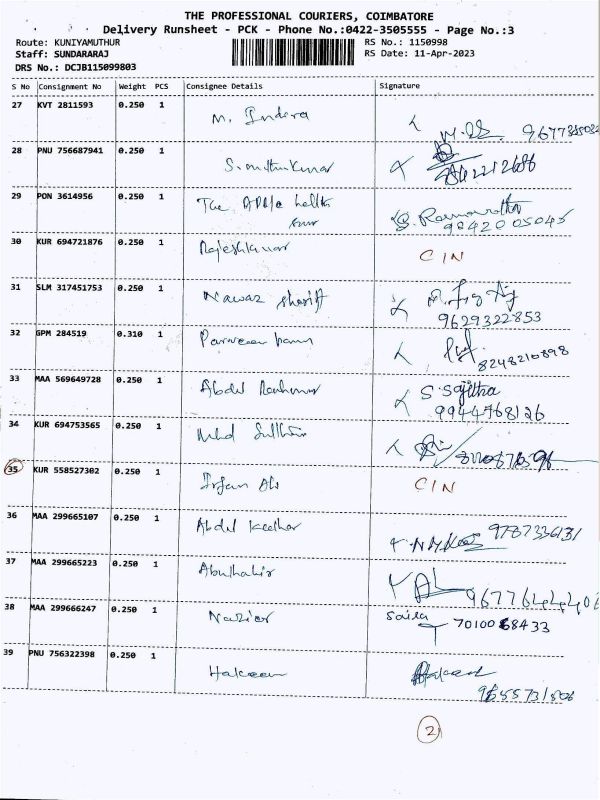 THE PROFESSIONAL COURIERS, COIMBATORE
Delivery Runsheet - PCK - Phone No.:0422-3505555 - Page No.:3
Route: KUNIYAMUTHUR RS No.: 1150998
Staff: SUNDARARAJ RS Date: 11-Apr-2023
DRS No.: DCJB115099803
S No Consignment No Weight PCS Consignee Details Signature
27 KVT 2811593 0.250 1 M. Indera
28 PNU 756687941 0.250 1
29 PON 3614956 0.250 1 The health
9842005045
30 KUR 694721876 0.250 1 Rajeshkumar CIN
31 SLM 317451753 0.250 1 Nawaz Sheriff
9629322853
32 GPM 284519 0.310 1 Parveen banu
8248210898
33 MAA 569649728 0.250 1 Abdul Rahman S Sajitha
9944768126
34 KUR 694753565 0.250 1
35 KUR 558527302 0.250 1 Irfan Ali CIN
36 MAA 299665107 0.250 1 Abdul Kadhar 9787336131
37 MAA 299665223 0.250 1 Abuthahir
9677644406
38 MAA 299666247 0.250 1 Nazior Saila
7010068433
39 PNU 756322398 0.250 1 Hakeem Hakeem
2